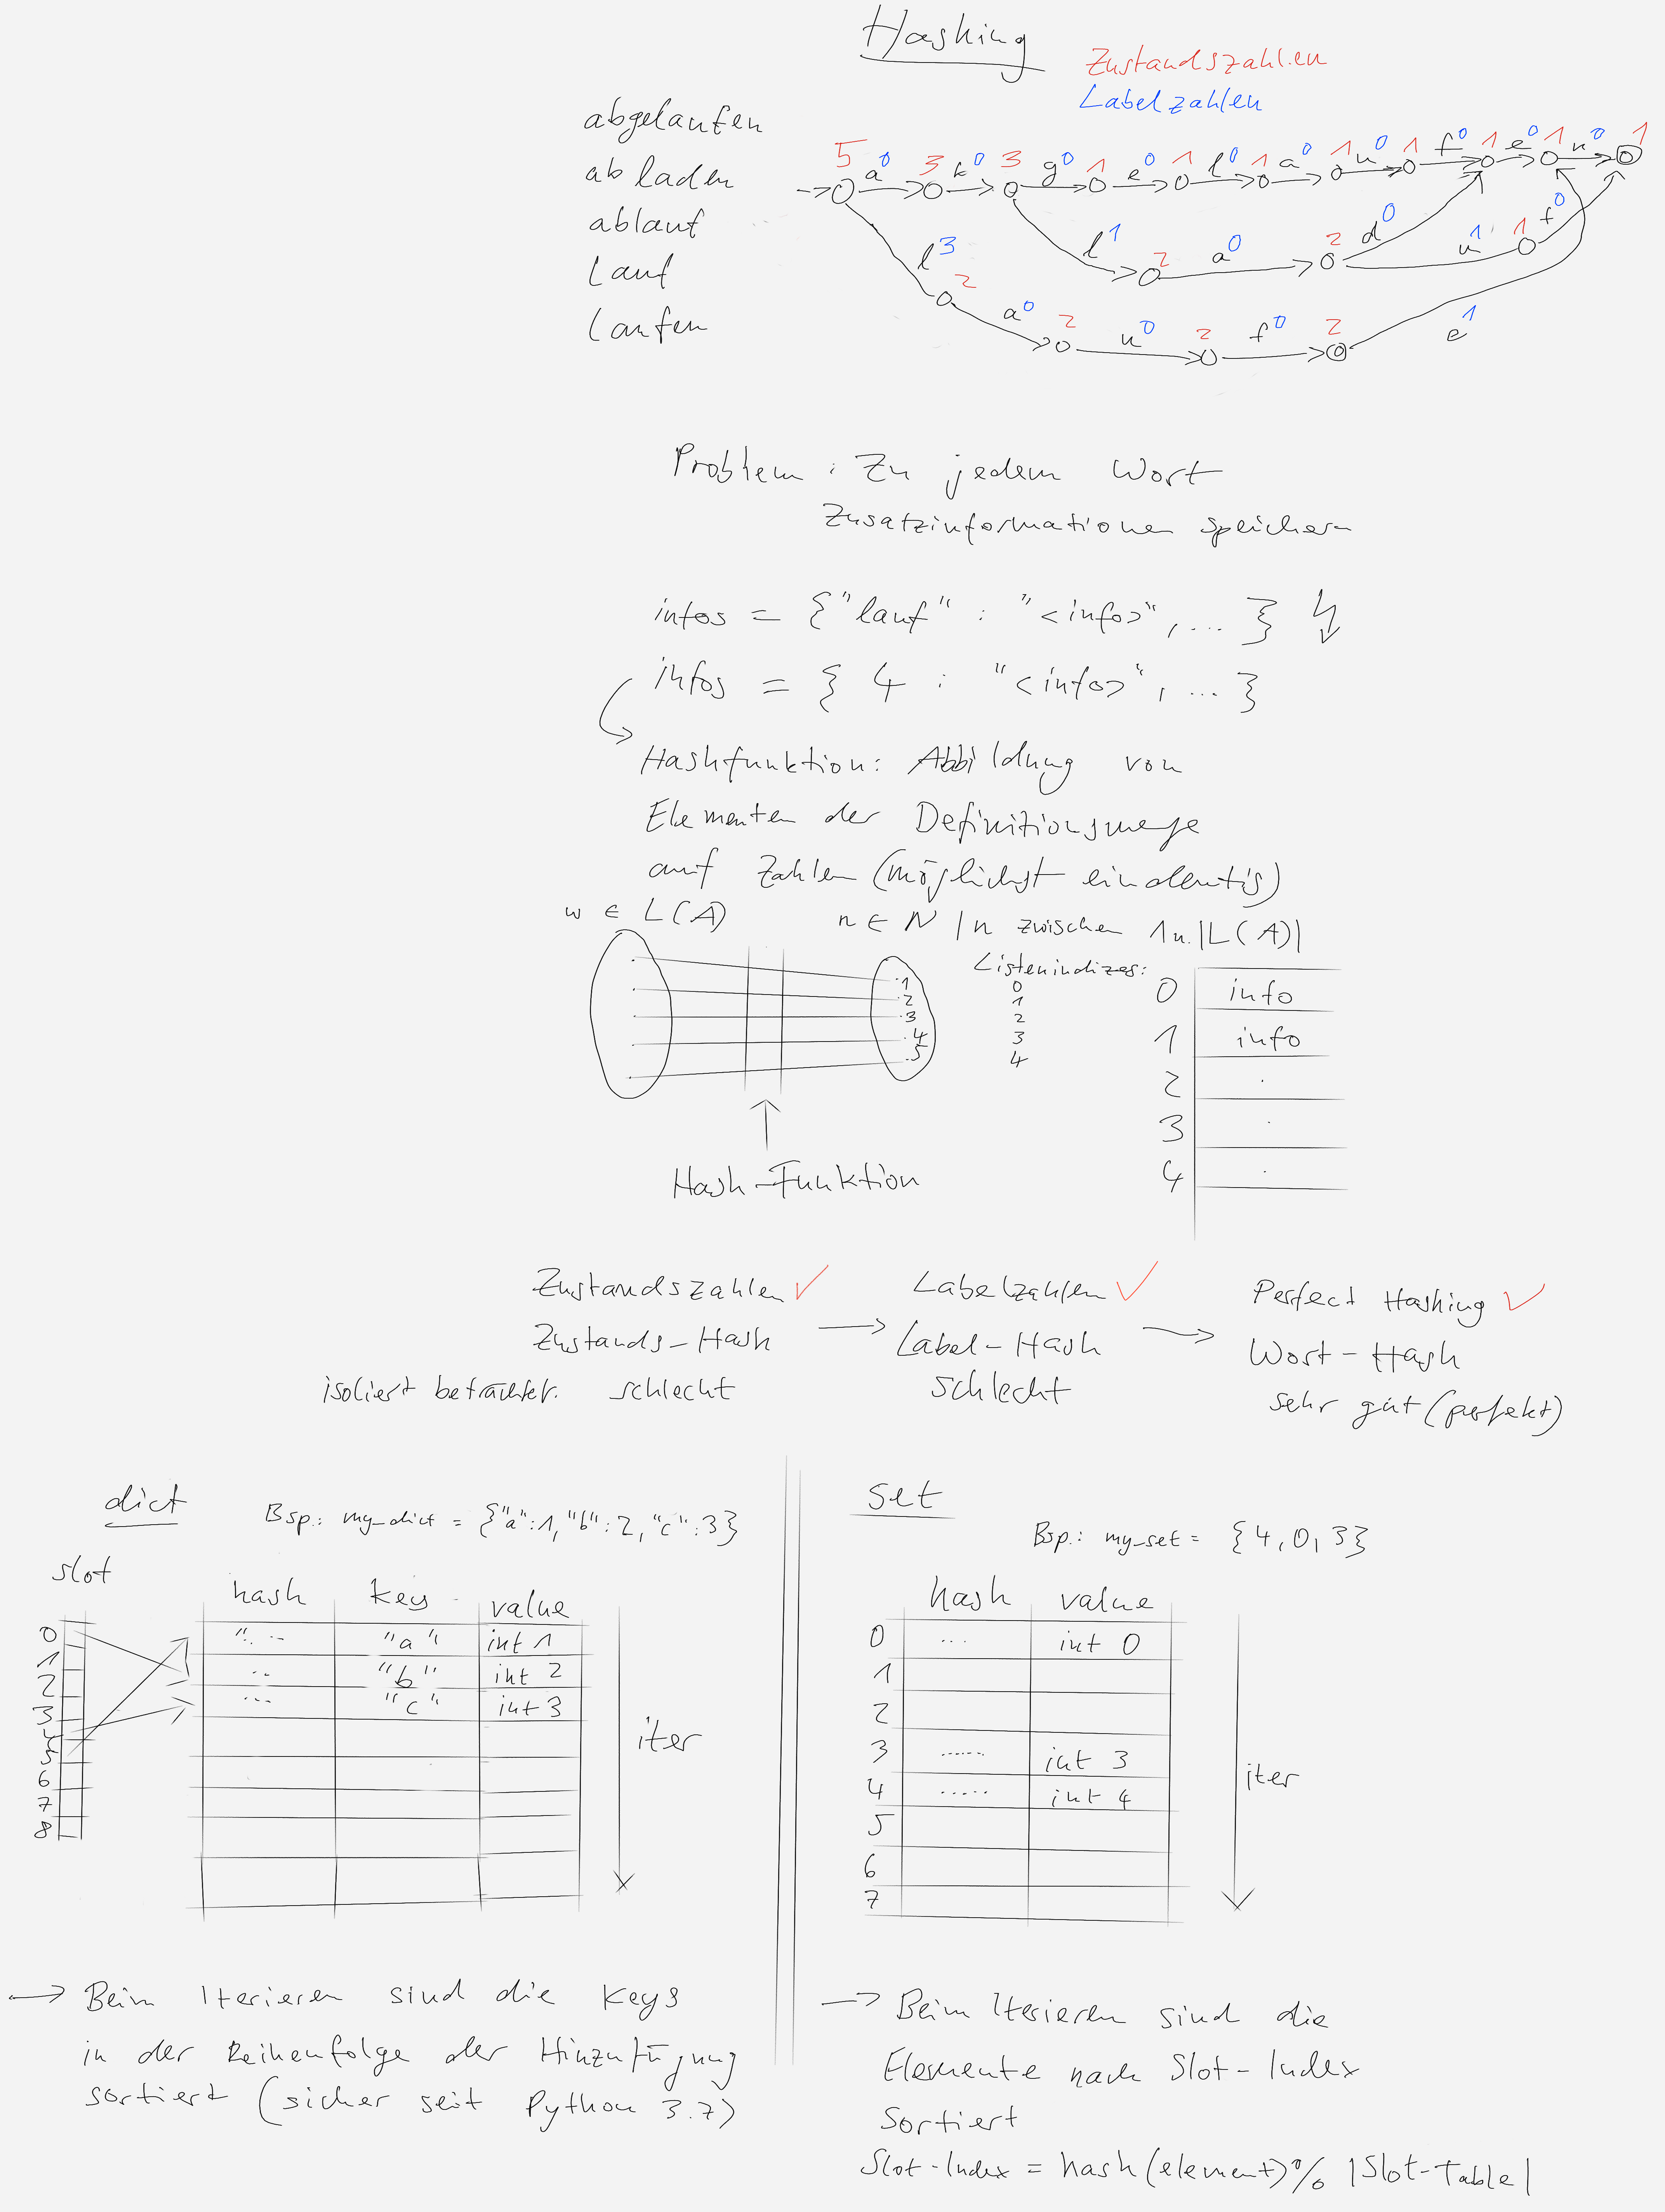 Hashing
Zustandszahlen
Labelzahlen
abgelaufen
abladen
ablauf
lauf
laufen
5 a 0 3 b 0 3 g 0 1 e 0 1 l 0 1 a 0 1 u 0 1 f 0 1 e 0 1 n 0 1
l 1 2 a 0 2 d 0 u 1 1 f 0
l 3 2 a 0 2 u 0 2 f 0 2 e 1
Problem: Zu jedem Wort
Zusatzinformationen speichern
infos = {"lauf" : "<info>", ... }
infos = { 4 : "<info>", ... }
Hashfunktion: Abbildung von
Elementen der Definitionsmenge
auf Zahlen (möglichst eindeutig)
w ∈ L(A)
n ∈ N | n zwischen 1 u. |L(A)|
1
2
3
4
5
Listenindizes:
0
1
2
3
4
0 info
1 info
2 .
3 .
4 .
Hash-Funktion
Zustandszahlen ✓ Labelzahlen ✓ Perfect Hashing ✓
Zustands-Hash → Label-Hash → Wort-Hash
isoliert betrachtet: schlecht schlecht sehr gut (perfekt)
dict
Bsp.: my_dict = {"a":1, "b":2, "c":3}
slot
0
1
2
3
4
5
6
7
8
hash key value
"... "a" int 1
.. "b" int 2
... "c" int 3
iter
→ Beim Iterieren sind die Keys
in der Reihenfolge der Hinzufügung
sortiert (sicher seit Python 3.7)
set
Bsp.: my_set = {4, 0, 3}
hash value
0 ... int 0
1
2
3 ...... int 3
4 ..... int 4
5
6
7
iter
→ Beim Iterieren sind die
Elemente nach Slot-Index
sortiert
Slot-Index = hash(element) % |Slot-Table|